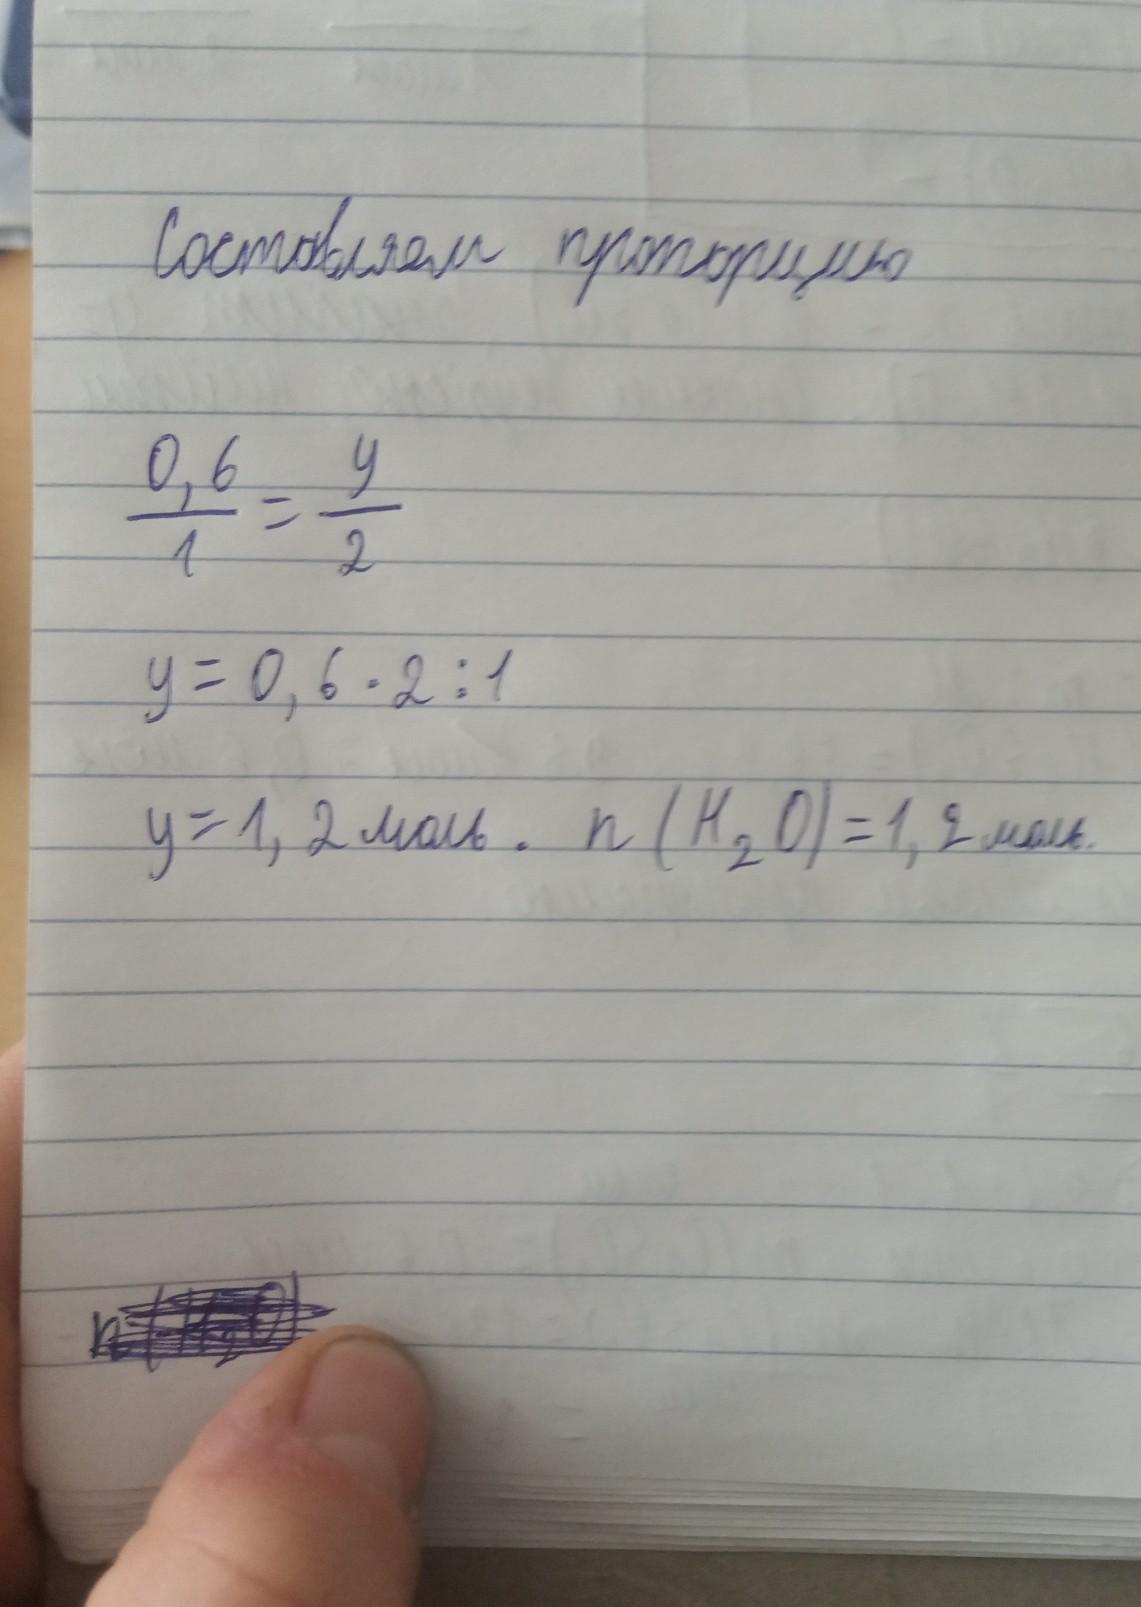 Составляем пропорцию
0,6/1 = y/2
y = 0,6 · 2 : 1
y = 1,2 моль. n (H₂O) = 1,2 моль.